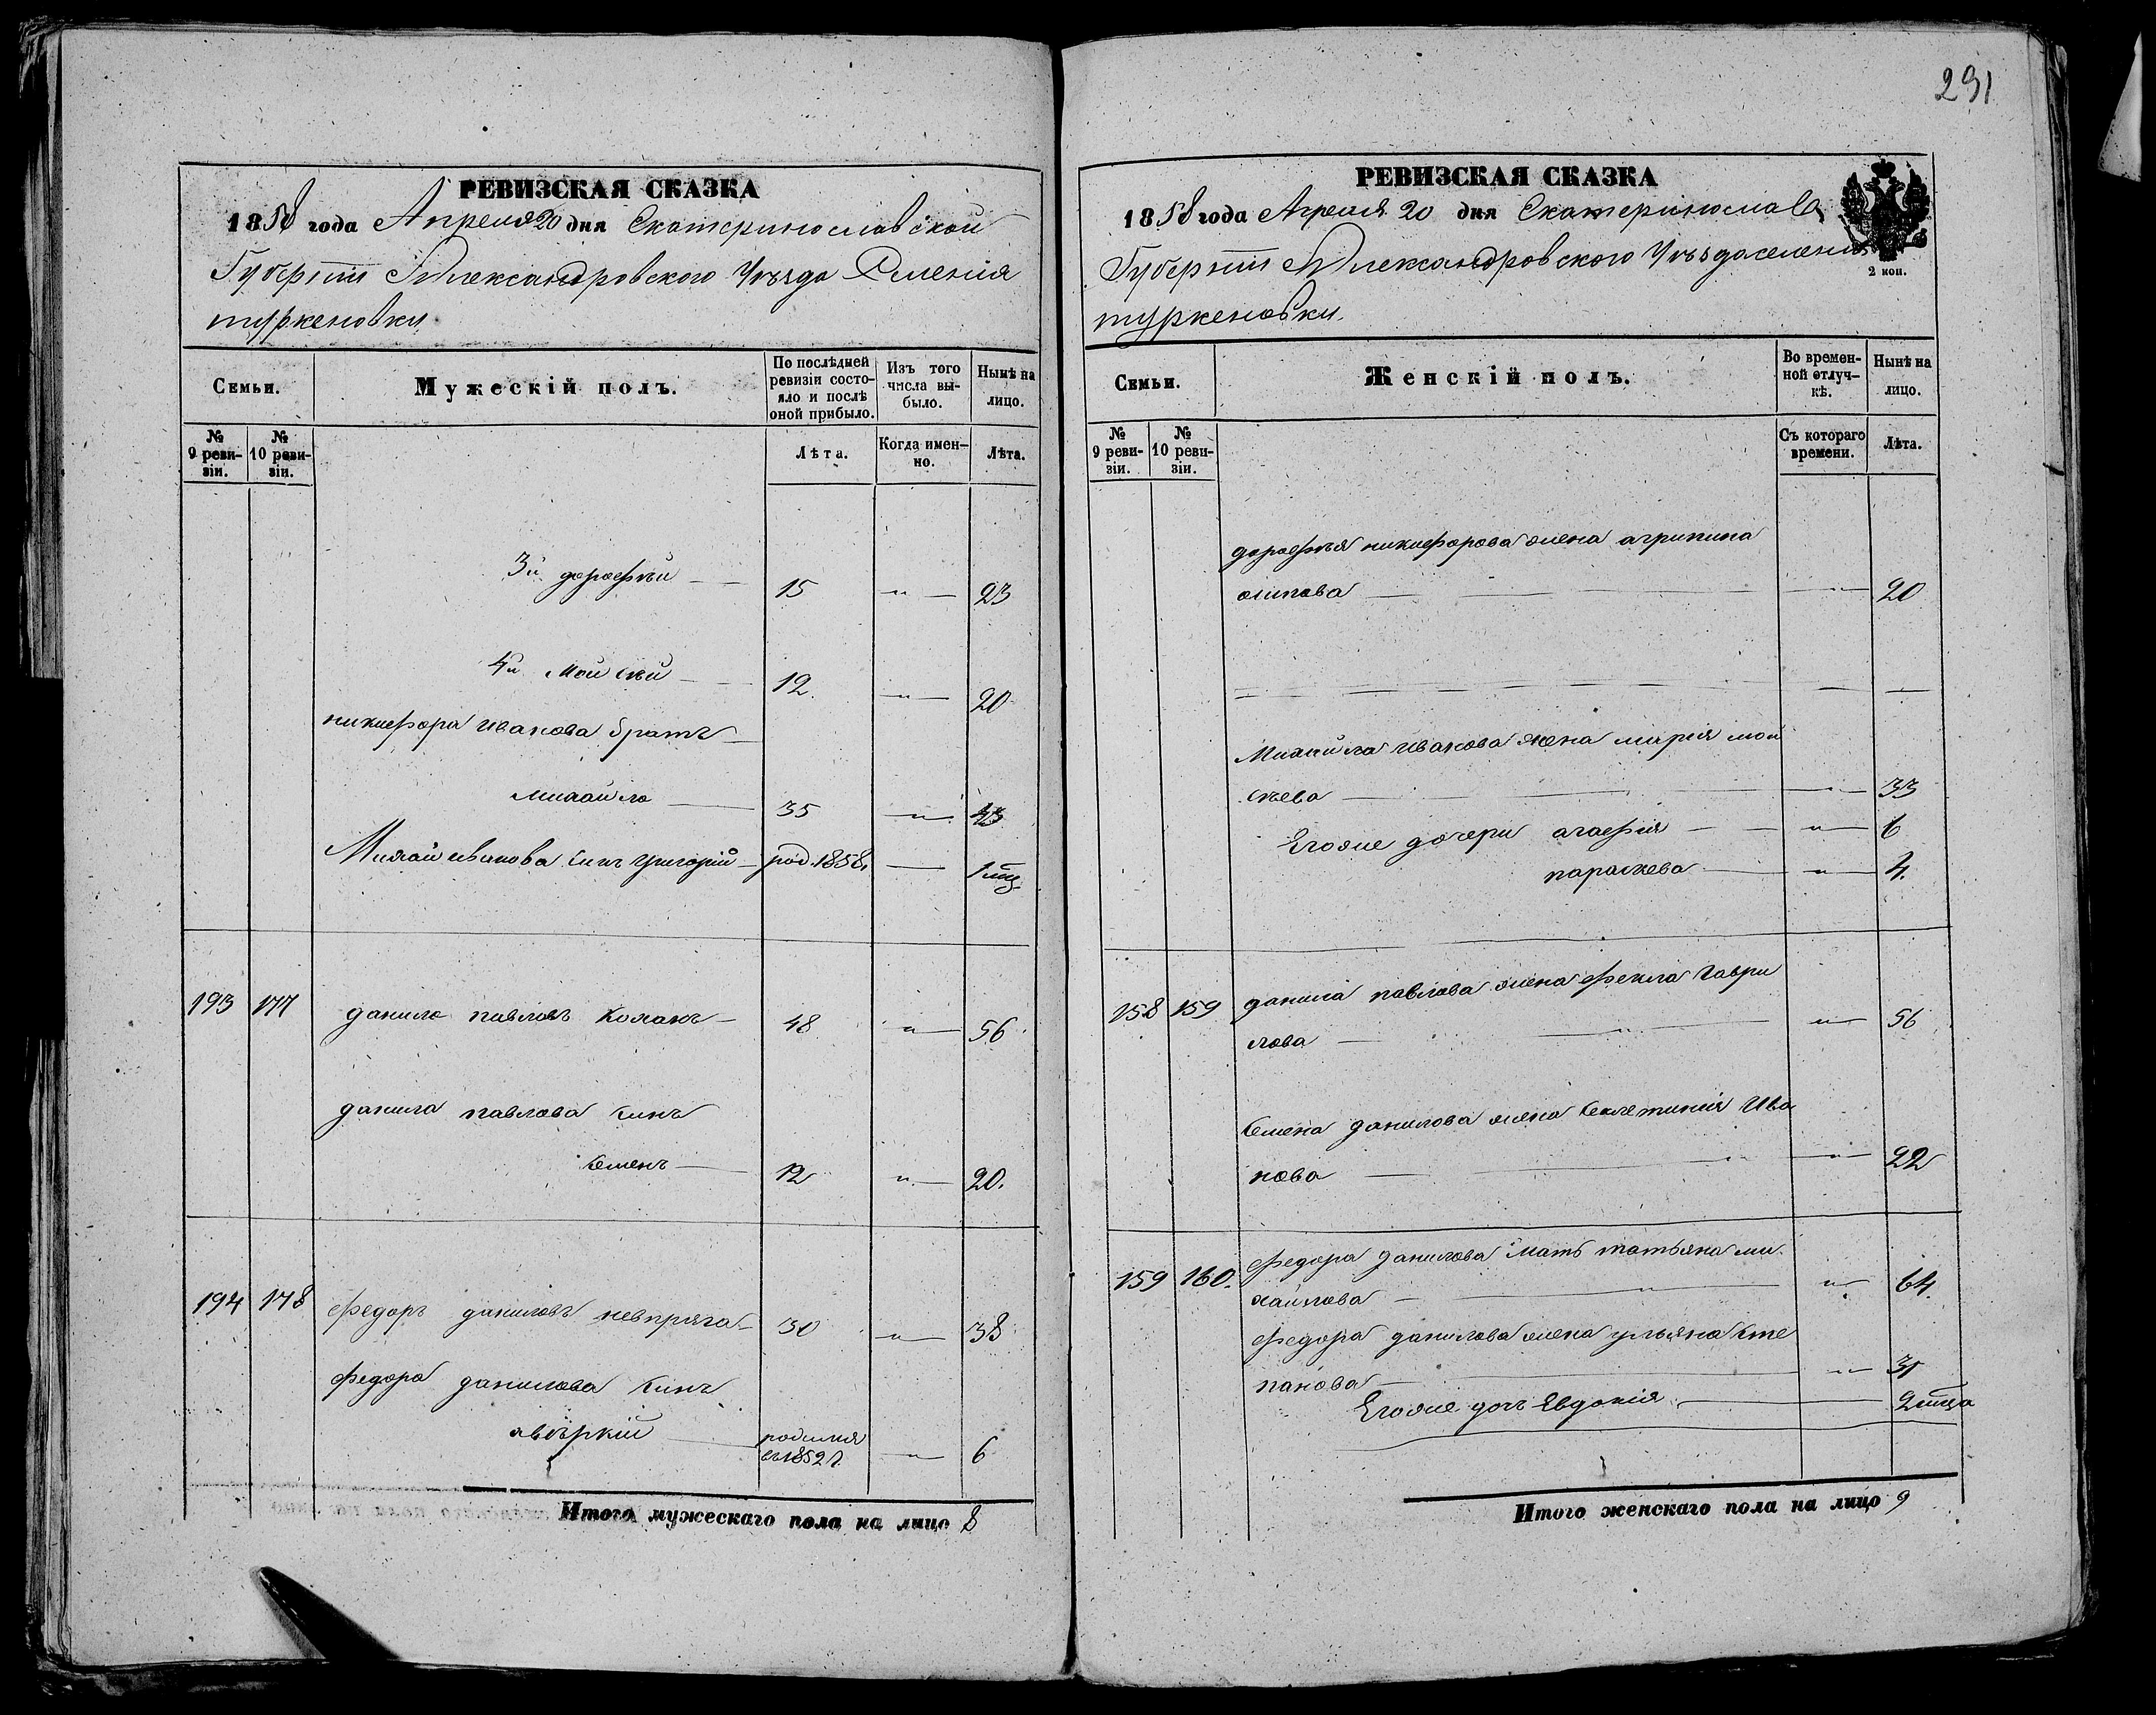 291
РЕВИЗСКАЯ СКАЗКА
1858 года Апреля 20 дня Екатеринославской
Губернии Александровского Уѣзда Селенія
туркеновки
Семьи.
Мужескій полъ.
По послѣдней ревизіи состояло и послѣ оной прибыло.
Изъ того числа выбыло.
Нынѣ на лицо.
№ 9 ревизіи.
№ 10 ревизіи.
Лѣта.
Когда именно.
Лѣта.
3й дорофѣй — 15 " — 23
4й Мойсѣй — 12. " — 20
никифора иванова братъ
михайло — 35 " — 43
Михай иванова синъ григорій — род. 1858 — 1 мц
193 177 данило павловъ коханъ — 48 " — 56
данила павлова синъ
семенъ — 12 " — 20.
194 178 федоръ даниловъ невпряга — 30 " — 38
федора данилова синъ
авѣркій — родился
въ 1852 г. " — 6
Итого мужескаго пола на лицо 8
РЕВИЗСКАЯ СКАЗКА
1858 года Апреля 20 дня Екатеринослав
Губернии Александровского Уѣзда селения
туркеновки.
2 коп.
Семьи.
Женскій полъ.
Во временной отлучкѣ.
Нынѣ на лицо.
№ 9 ревизіи.
№ 10 ревизіи.
Съ котораго времени.
Лѣта.
дорофѣя никифорова жена агрипина
осипова — " — 20
Михайла иванова жена марія мой
сѣева — " — 33
Егоже дочери агафія — " — 6
параскева — " — 4.
158 159 данила павлова жена фекла Гаври
лова — " — 56
семена данилова жена секлетинія Ива
нова — " — 22
159 160. федора данилова мать татьяна ми
хайлова — " — 64.
федора данилова жена ульяна сте
панова — " — 31
Егоже дочъ Евдокія — 2 мца
Итого женскаго пола на лицо 9